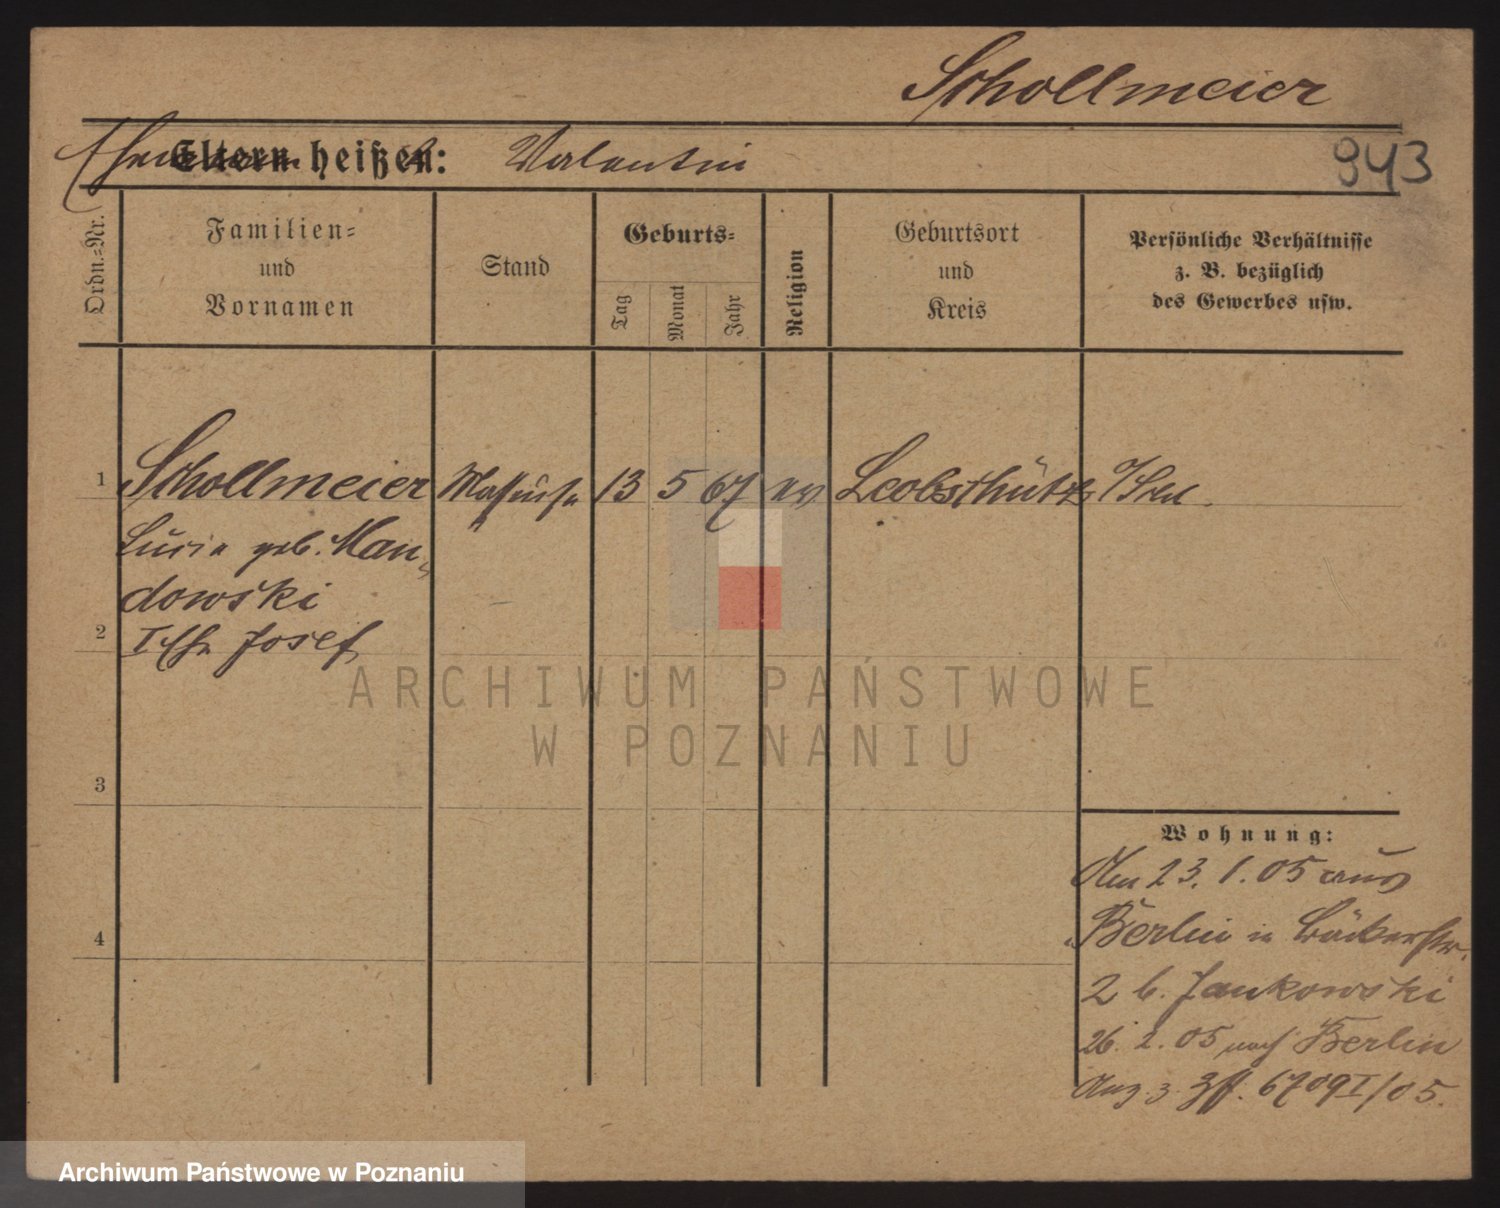 Schollmeier
Ehemann Eltern heißen: Valentin
943
Ordn.=Nr.
Familien=
und
Vornamen
Stand
Geburts=
Tag
Monat
Jahr
Religion
Geburtsort
und
Kreis
Persönliche Verhältnisse
z. B. bezüglich
des Gewerbes usw.
1
Schollmeier 13 5 67 ev Leobschütz
Lucie geb. Man-
dowski
2
I Ehe Josef
3
4
Wohnung:
Am 23. 1. 05 aus
Berlin in Bäckerstr.
2 b. Jankowski
26. 2. 05 nach Berlin
Anz. z. 6709 I/05.
ARCHIWUM PAŃSTWOWE
W POZNANIU
Archiwum Państwowe w Poznaniu